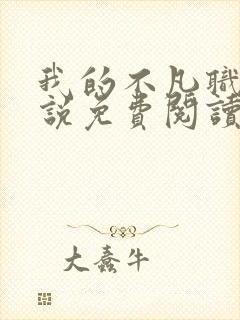 我的不凡職
說免費閱讀
大蠢牛